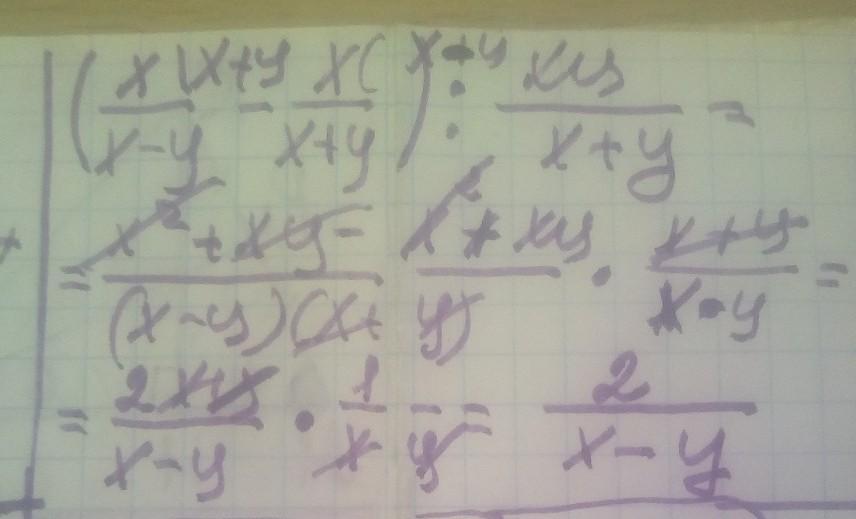 (x/(x-y) \x+y - x/(x+y) \x-y) : xy/(x+y) =
= (x²+xy-x²+xy)/((x-y)(x+y)) · (x+y)/(x·y) =
= 2xy/(x-y) · 1/(xy) = 2/(x-y)